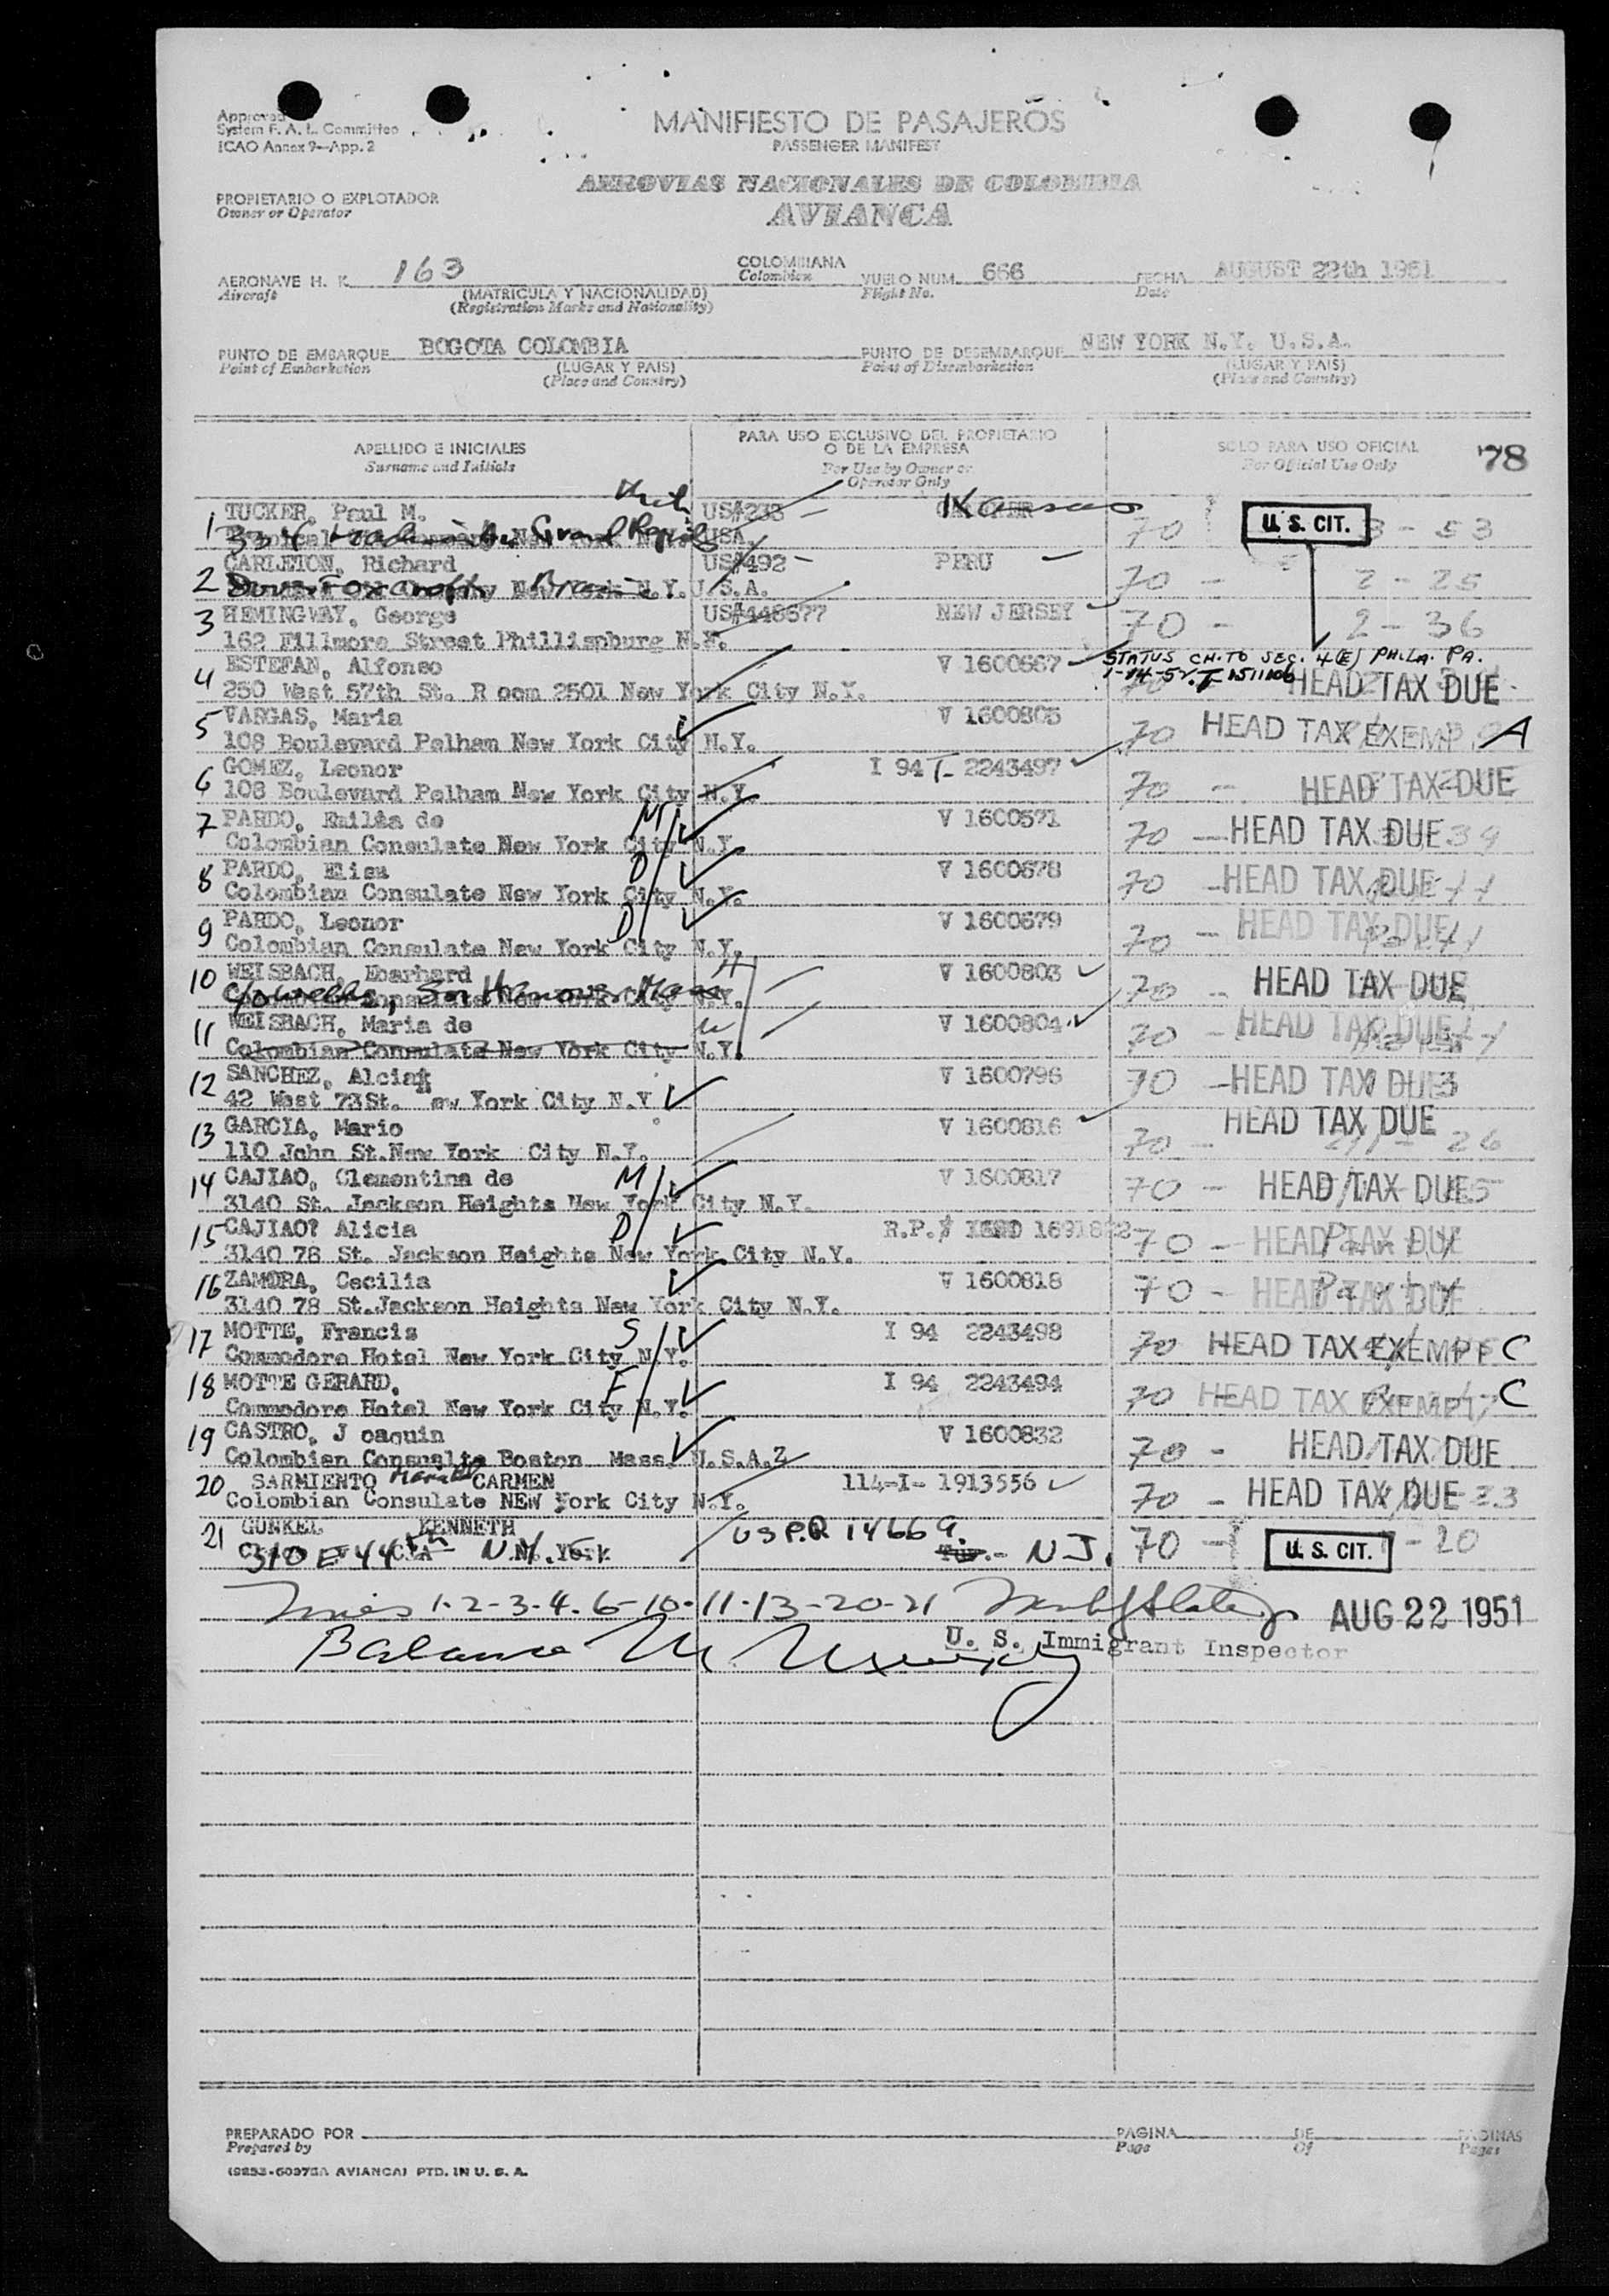 Approved
System F. A. L. Committee
ICAO Annex 9—App. 2
MANIFIESTO DE PASAJEROS
PASSENGER MANIFEST
AEROVIAS NACIONALES DE COLOMBIA
AVIANCA
PROPIETARIO O EXPLOTADOR
Owner or Operator
AERONAVE H. K. 163 COLOMBIANA VUELO NUM. 666 FECHA AUGUST 22th 1951
Aircraft Colombian Flight No. Date
(MATRICULA Y NACIONALIDAD)
(Registration Marks and Nationality)
PUNTO DE EMBARQUE BOGOTA COLOMBIA PUNTO DE DESEMBARQUE NEW YORK N.Y. U.S.A.
Point of Embarkation (LUGAR Y PAIS) Point of Disembarkation (LUGAR Y PAIS)
(Place and Country) (Place and Country)
APELLIDO E INICIALES PARA USO EXCLUSIVO DEL PROPIETARIO O DE LA EMPRESA SOLO PARA USO OFICIAL 78
Surname and Initials For Use by Owner or Operator Only For Official Use Only
1 TUCKER, Paul M. US#233 Kansas 70 U. S. CIT. 53
334 Grand Rapids USA.
2 CARLETON, Richard US#492 PERU 70 - 2-25
N.Y. U.S.A.
3 HEMINGWAY, George US#448677 NEW JERSEY 70 - 2-36
162 Fillmore Street Phillispburg
4 ESTEFAN, Alfonso V 1600667 STATUS CH. TO SEC. 4(E) PHILA. PA.
250 West 57th St. R oom 2501 New York City N.Y. HEAD TAX DUE
5 VARGAS, Maria V 1600805 70 HEAD TAX EXEMPT A
108 Boulevard Pelham New York City N.Y.
6 GOMEZ, Leonor I 94 T- 2243497 70 - HEAD TAX DUE
108 Boulevard Pelham New York City N.Y.
7 PARDO, Emilia de M V 1600571 70 - HEAD TAX DUE
Colombian Consulate New York City N.Y.
8 PARDO, Elisa D V 1600678 70 - HEAD TAX DUE
Colombian Consulate New York City N.Y.
9 PARDO, Leonor D V 1600679 70 - HEAD TAX DUE
Colombian Consulate New York City N.Y.
10 WEISBACH, Eberhard H V 1600803 70 - HEAD TAX DUE
11 WEISBACH, Maria de W V 1600804 70 - HEAD TAX DUE
Colombian Consulate New York City N.Y.
12 SANCHEZ, Alcia V 1600796 70 - HEAD TAX DUE
42 West 73St. ew York City N.Y
13 GARCIA, Mario V 1600816 70 - HEAD TAX DUE
110 John St.New York City N.Y.
14 CAJIAO, Clementina de M V 1600817 70 - HEAD TAX DUE
3140 St. Jackson Heights New York City N.Y.
15 CAJIAO? Alicia D R.P. 70 - HEAD TAX DUE
3140 78 St. Jackson Heights New York City N.Y.
16 ZAMORA, Cecilia V 1600818 70 - HEAD TAX DUE
3140 78 St.Jackson Heights New York City N.Y.
17 MOTTE, Francis S I 94 2243498 70 HEAD TAX EXEMPT C
Commodore Hotel New York City N.Y.
18 MOTTE GERARD, F I 94 2243494 70 HEAD TAX EXEMPT C
Commodore Hotel New York City N.Y.
19 CASTRO, J oaquin V 1600832 70 - HEAD TAX DUE
Colombian Consualte Boston Mass. U.S.A.
20 SARMIENTO CARMEN 114-I- 1913556 70 - HEAD TAX DUE
Colombian Consulate NEW York City N.Y.
21 GUNKEL KENNETH USPR 14669. N J. 70 - U. S. CIT. - 20
310 E 44 th N.Y.
1-2-3-4-6-10-11-13-20-21 AUG 22 1951
U. S. Immigrant Inspector
Balance
PREPARADO POR PAGINA DE PAGINAS
Prepared by Page Of Pages
AVIANCA) PTD. IN U. S. A.